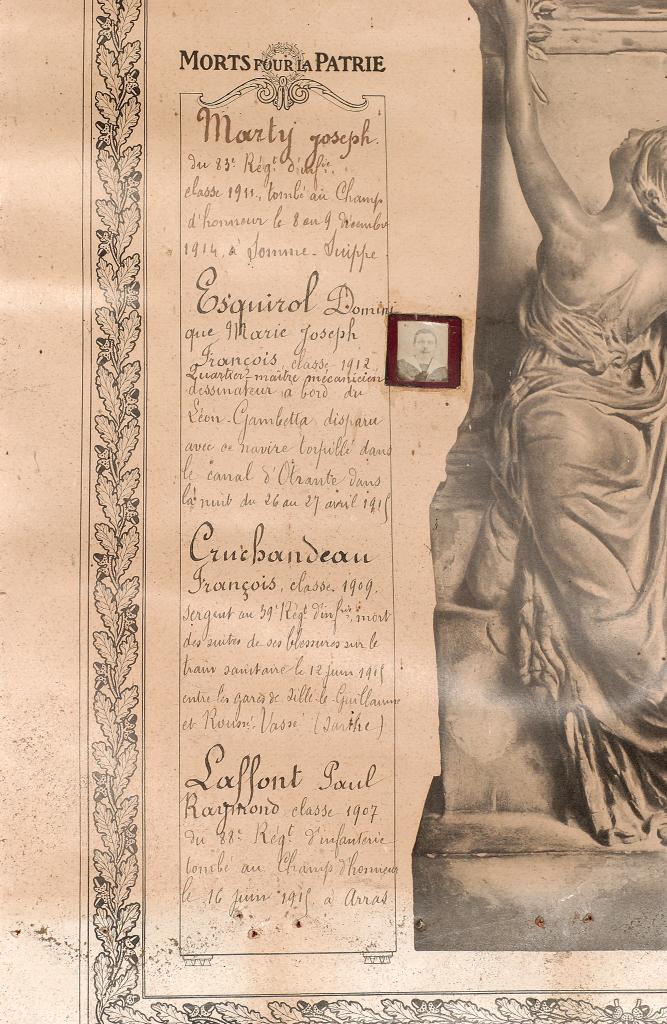 MORTS POUR LA PATRIE
Marty Joseph.
du 83e Régt d'infie
classe 1911, tombé au Champ
d'honneur le 8 au 9 décembre
1914, à Somme-Suippe
Esquirol Domini
que Marie Joseph
François, classe 1912
Quartier-maître mécanicien
dessinateur à bord du
Léon-Gambetta disparu
avec ce navire torpillé dans
le canal d'Otrante dans
la nuit du 26 au 27 avril 1915
Cruchandeau
François, classe 1909.
sergent au 59e Régt d'infrie, mort
des suites de ses blessures sur le
train sanitaire le 12 juin 1915
entre les gares de Sillé-le-Guillaume
et Rouessé-Vassé (Sarthe)
Laffont Paul
Raymond classe 1907
du 88e Régt d'infanterie
tombé au Champ d'honneur
le 16 juin 1915 à Arras